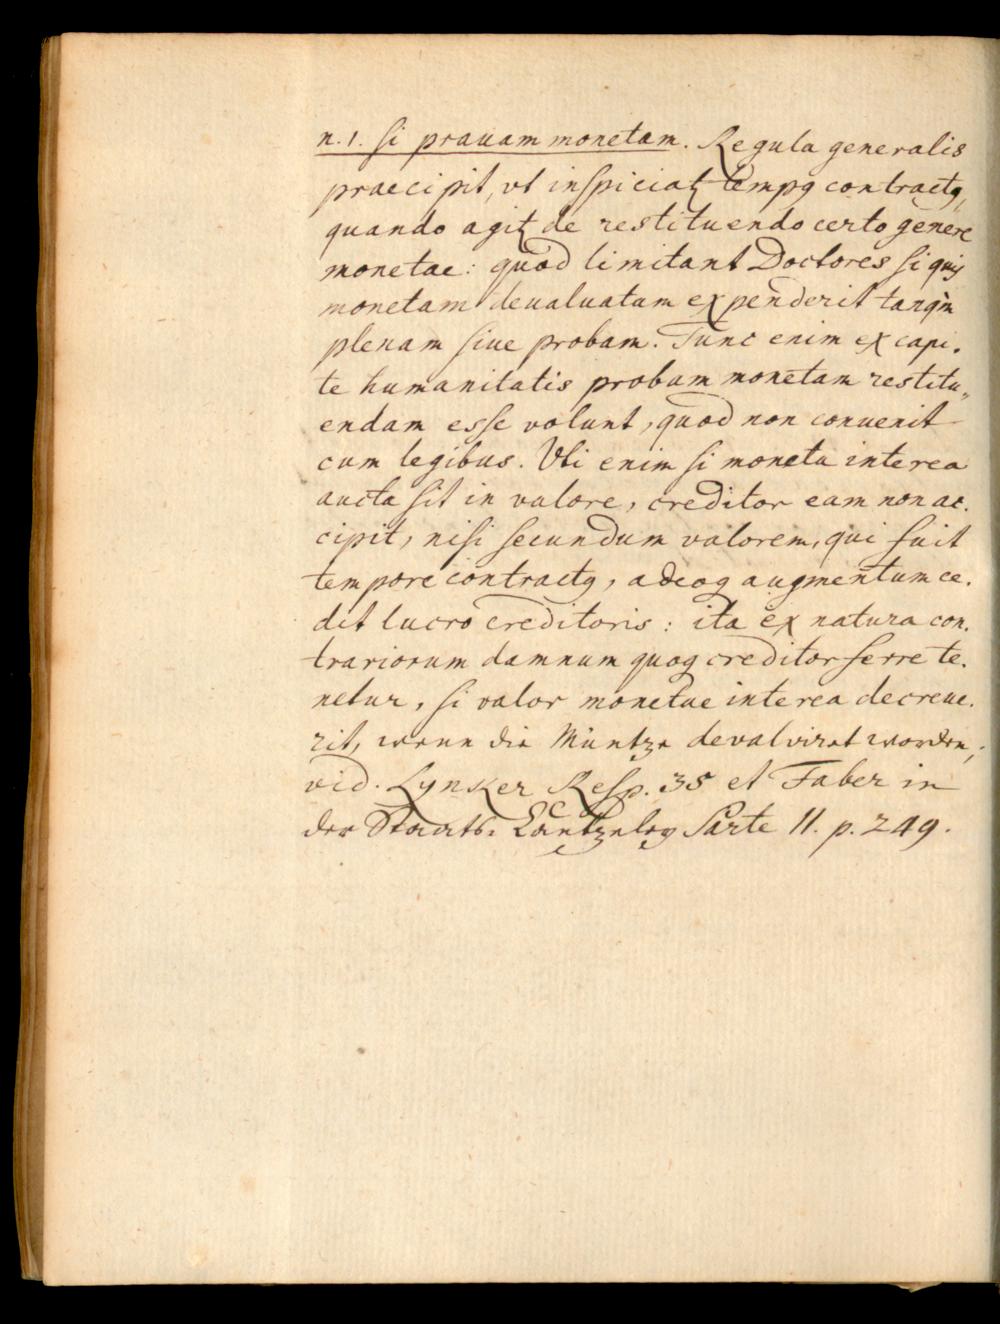 n. 1. si prauam monetam. Regula generalis
praecipit, vt inspiciatꝫ tempꝰ contractꝰ,
quando agitꝫ de restituendo certo genere
monetae: quod limitant Doctores si quis
monetam devaluatam expenderit tanqm̀
plenam siue probam. Tunc enim ex capi.
te humanitatis probam monetam restitu„
endam esse volunt, quod non conuenit
cum legibus. Vti enim si moneta interea
aucta sit in valore, creditor eam non ac.
cipit, nisi secundum valorem, qui fuit
tempore contractꝰ, adeoq augmentum ce.
dit lucro creditoris: ita ex natura con.
trariorum damnum quoq creditor ferre te.
netur, si valor monetae interea decreue.
rit, wenn die Müntze devalviret worden;
vid. Lynker Resp. 35 et Faber in
der Staats-Cantzeley Parte II. p. 249.